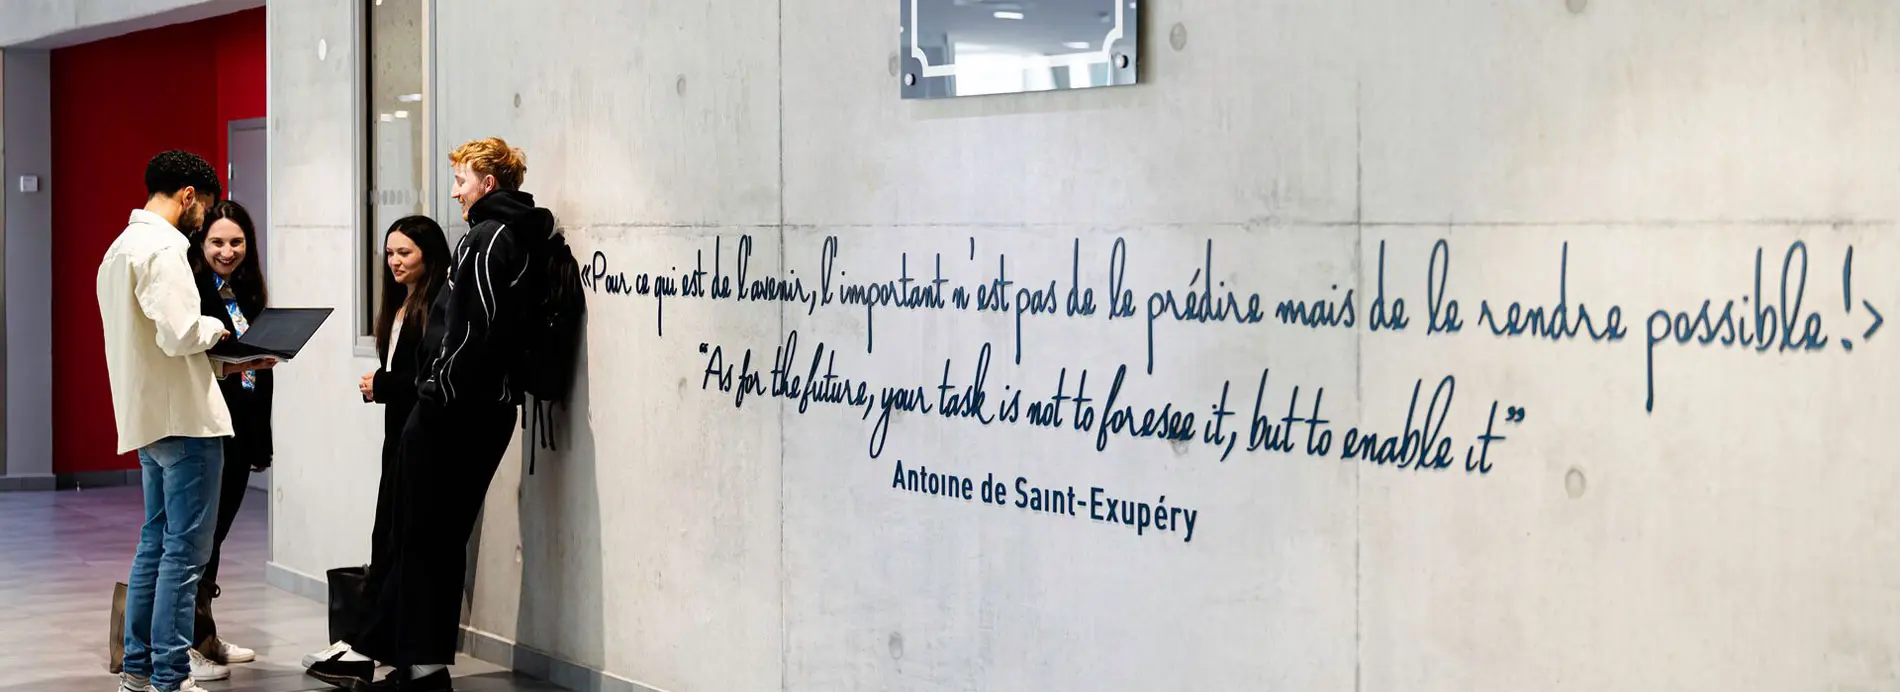 «Pour ce qui est de l'avenir, l'important n'est pas de le prédire mais de le rendre possible!>
“As for the future, your task is not to foresee it, but to enable it”
Antoine de Saint-Exupéry